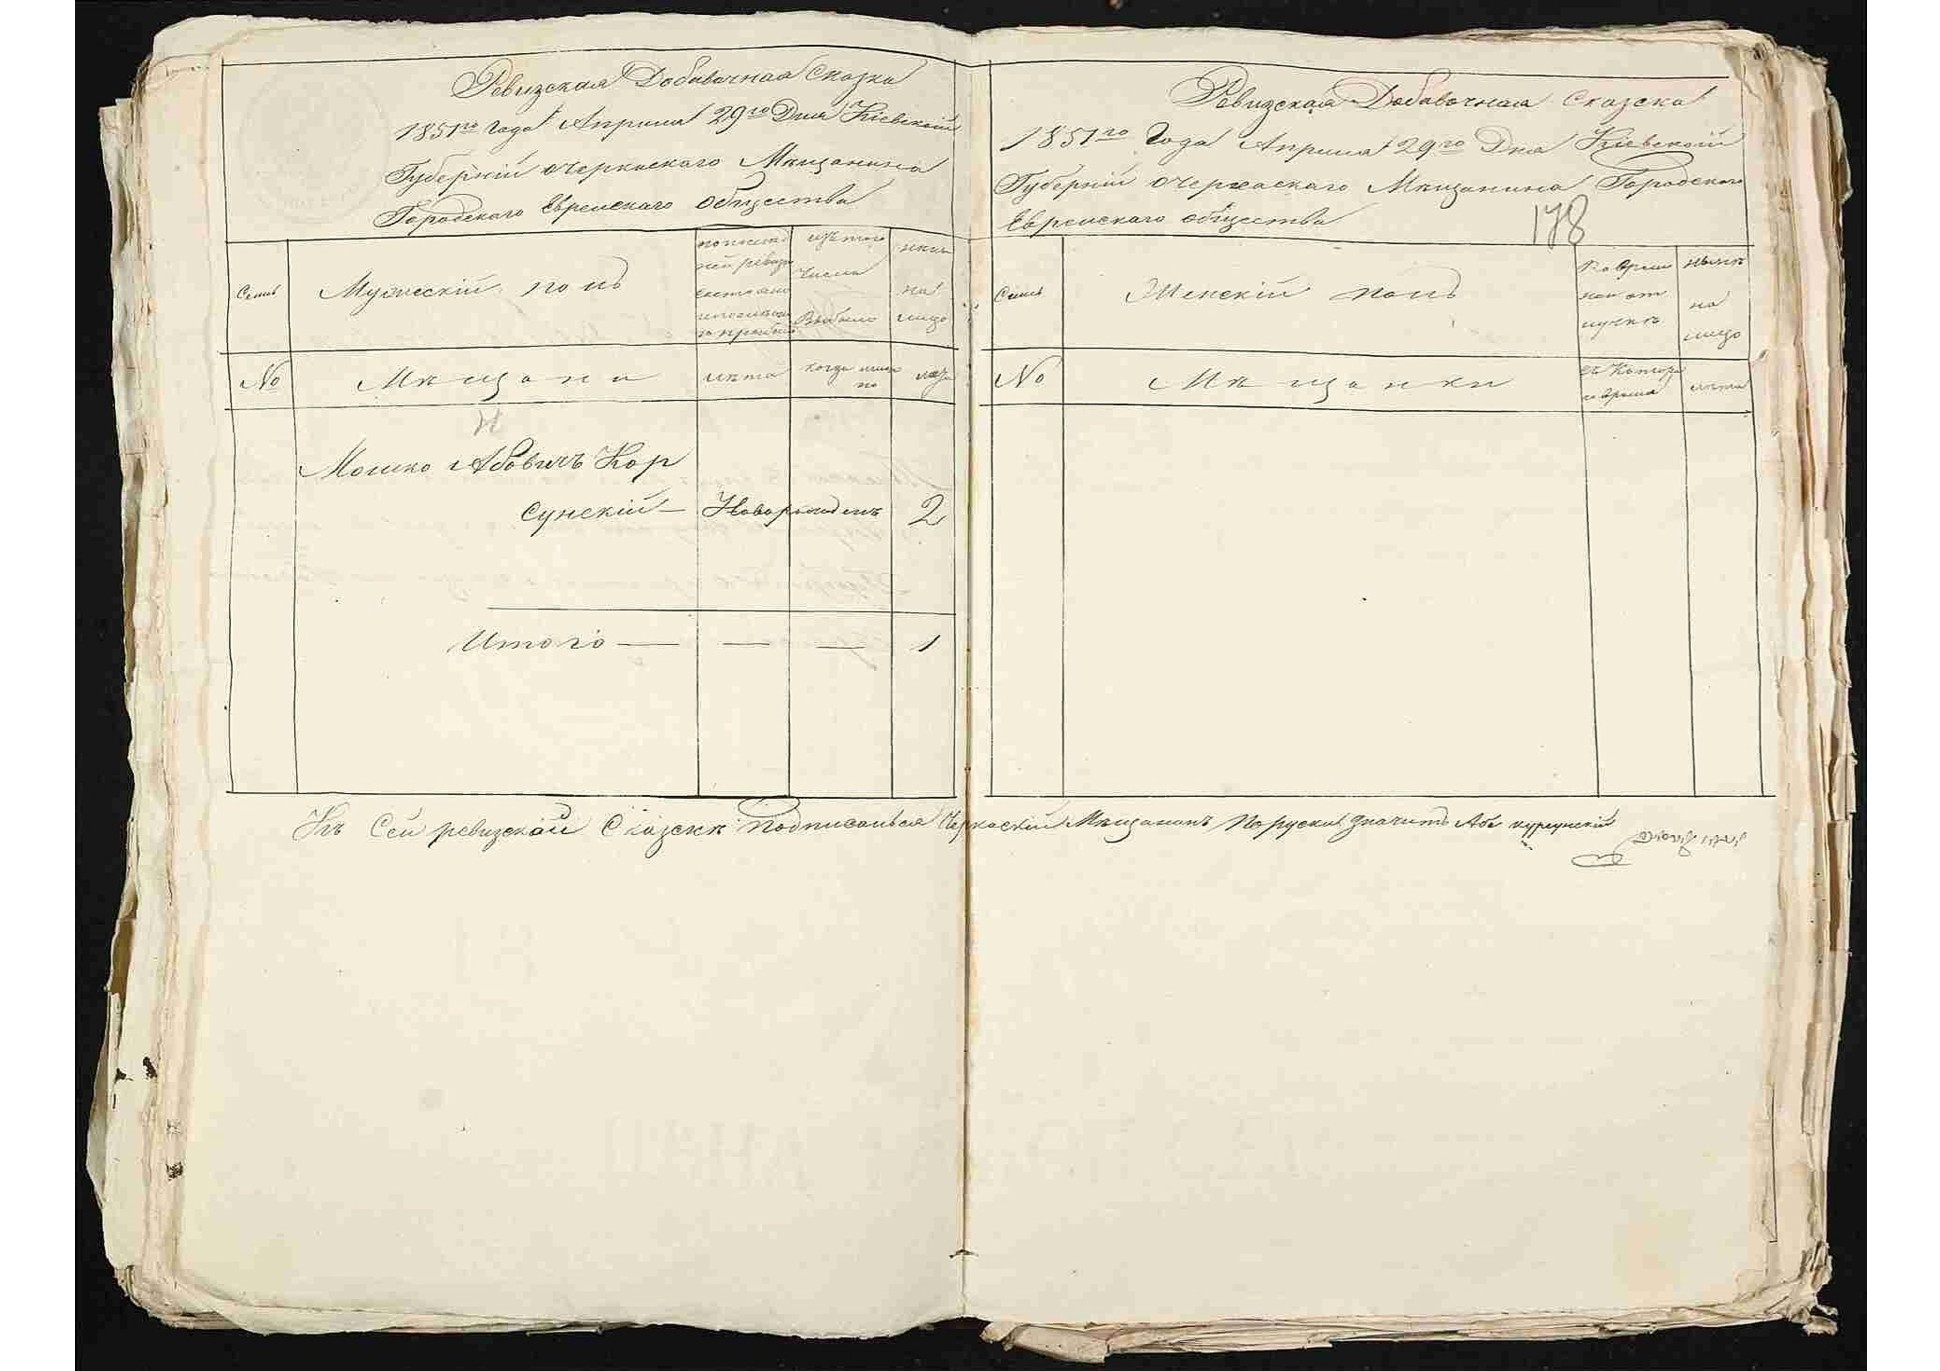 Ревизская Добавочная Сказка
1851го Года Апреля 29го Дня Кіевской
Губерніи Черкаскаго Мещанина
Городскаго Еврейскаго Общества
Семьи
Мужескій полъ
по послед
ней ревизи
состояло
и после
изъ того
числа
Выбыло
ныне
на
лицо
No
Мещани
лета
когда имен
но
лета
Мошко Абовичъ Кор
сунскій — Новорожденъ 2
Итого — — — 1
Ревизская Добавочная Сказска
1851го Года Апреля 29го Дня Кіевской
Губерніи Черкаскаго Мещанина Городского
Еврейскаго общества
178
Семьи
Женскій полъ
Во време
ной от
лучке
ныне
на
лицо
No
Мещанки
съ Котора
го време
лета
Къ Сей ревизской Сказске Подписалься Черкаскій Мещанинъ По руски значитъ Аба курсунскій